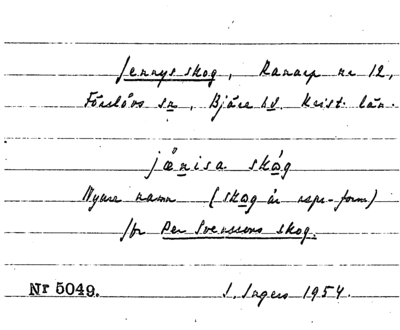 Jennys skog, Ranarp nr 12,
Förslövs sn, Bjäre hd. Krist. län.
jænisa skåg
Nyare namn (skog är rspr-form)
för Per Svenssons skog.
Nr 5049. I. Ingers 1954.